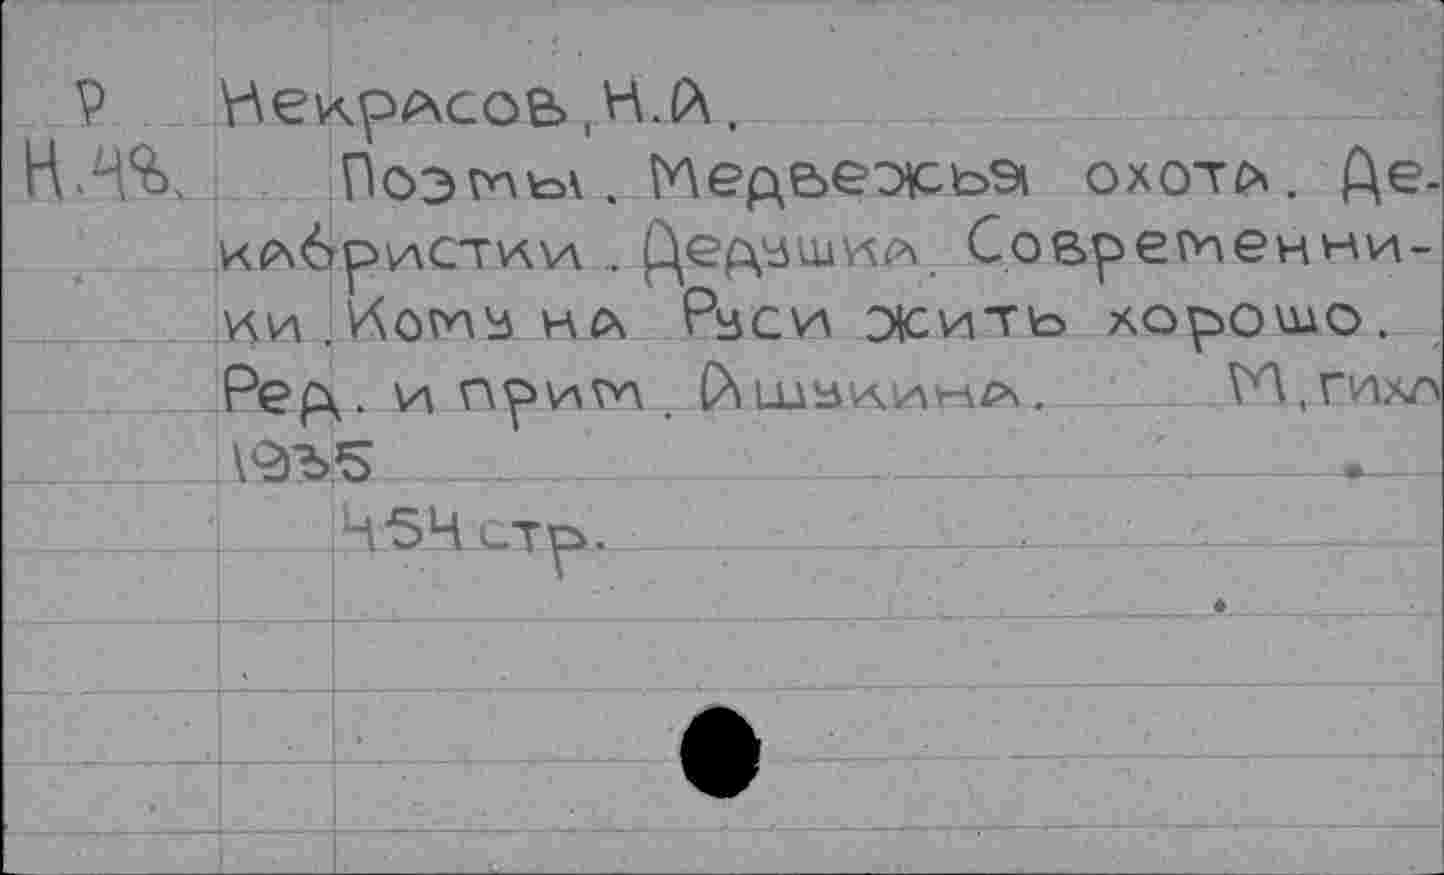 Р Некрасов, Н.А.
Н.48. Поэмы. Медвежья охота. Де-
кабристки. Дедушка. Современни-
ки. Кому на Руси жить хорошо.
Ред. и прим. Ашукина. М, гихл
1935
454 стр.